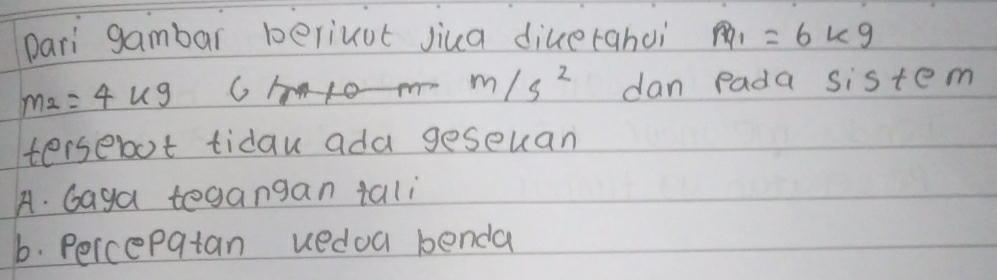 Dari gambar berikut jika diketahui m1 = 6 kg
m2 = 4 kg G m/s² dan pada sistem
tersebut tidak ada gesekan
A. Gaya tegangan tali
b. Percepatan kedua benda